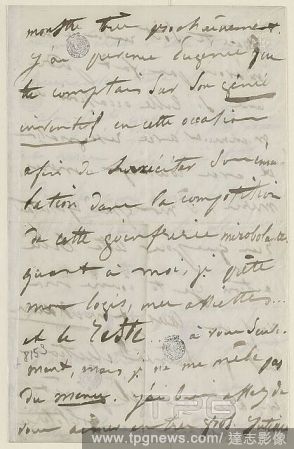 monstre très prochainement.
j'ai prévenu Eugénie que
tu comptais sur son génie
inventif en cette occasion
afin de surexciter son ému-
lation dans la composition
de cette goinfrerie mirobolante.
quant à moi, je prête
mon logis, mes assiettes...
et le Reste... à vous seule-
ment, mais je ne me mêle pas
8153
du menu. j'ai bien assez de
vous
TPG
www.tpgnews.com/達志影像